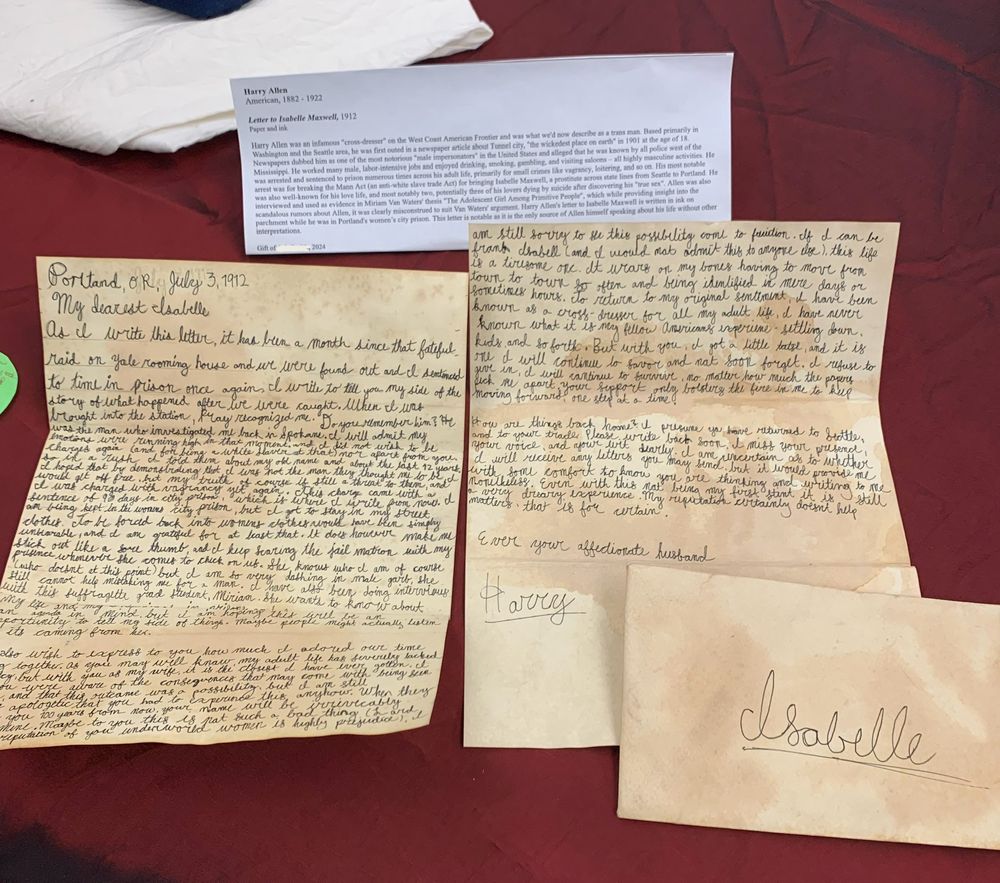 Harry Allen
American, 1882 - 1922
Letter to Isabelle Maxwell, 1912
Paper and ink
Harry Allen was an infamous "cross-dresser" on the West Coast American Frontier and was what we'd now describe as a trans man. Based primarily in
Washington and the Seattle area, he was first outed in a newspaper article about Tunnel city, "the wickedest place on earth" in 1901 at the age of 18.
Newspapers dubbed him as one of the most notorious "male impersonators" in the United States and alleged that he was known by all police west of the
Mississippi. He worked many male, labor-intensive jobs and enjoyed drinking, smoking, gambling, and visiting saloons – all highly masculine activities. He
was arrested and sentenced to prison numerous times across his adult life, primarily for small crimes like vagrancy, loitering, and so on. His most notable
arrest was for breaking the Mann Act (an anti-white slave trade Act) for bringing Isabelle Maxwell, a prostitute across state lines from Seattle to Portland. He
was also well-known for his love life, and most notably two, potentially three of his lovers dying by suicide after discovering his "true sex". Allen was also
interviewed and used as evidence in Miriam Van Waters' thesis "The Adolescent Girl Among Primitive People", which while providing insight into the
scandalous rumors about Allen, it was clearly misconstrued to suit Van Waters' argument. Harry Allen's letter to Isabelle Maxwell is written in ink on
parchment while he was in Portland's women's city prison. This letter is notable as it is the only source of Allen himself speaking about his life without other
interpretations.
Gift of , 2024
Portland, O.R, July 3, 1912
My dearest Isabelle
As I write this letter, it has been a month since that fateful
raid on Yale rooming house and we were found out and I sentenced
to time in prison once again, I write to tell you my side of the
story of what happened after we were caught. When I was
brought into the station, recognized me. Do you remember him? He
was the man who investigated me back in Spokane. I will admit my
emotions were running high in that moment, and I did not wish to be
charged again (and for being a white slaver at that) nor apart from you.
So in a rush I told them about my old name and about the last 12 years.
I hoped that by demonstrating that I was not the man they thought me to be I
would get off free, but my truth of course is still a threat to them, and
I was charged with vagrancy yet again. This charge came with a
sentence of 90 days in city prison, which is where I write from now. I
am being kept in the womens city prison, but I got to stay in my street
clothes. To be forced back into womens clothes would have been simply
unbearable, and I am grateful for at least that. It does however make me
stick out like a sore thumb, and I keep scaring the jail matron with my
presence whenever she comes to check on us. She knows who I am of course
(who doesnt at this point) but I am so very dashing in male garb, she
still cannot help mistaking me for a man. I have also been doing interviews
with this suffragette grad student, Miriam. She wants to know about
my life and my
an agenda in mind but I am hoping this be an
opportunity to tell my side of things. Maybe people might actually listen
its coming from her.
also wish to express to you how much I adored our time
together. As you may well know, my adult life has severely lacked
but with you as my wife, it is the closest I have ever gotten. I
you were aware of the consequences that may come with being seen
, and that this outcome was a possibility, but I am still
apologetic that you had to experience this anyhow. When they
you 100 years from now, your name will be irrevocably
mine. Maybe to you this is not such a bad thing (I and
reputation of you underworld women is highly prejudice). I
am still sorry to see this possibility come to fruition. If I can be
frank Isabell (and I would not admit this to anyone else), this life
is a tiresome one. It wears on my bones having to move from
town to town so often and being identified in mere days or
sometimes hours. To return to my original sentiment, I have been
known as a cross-dresser for all my adult life. I have never
known what it is my fellow Americans experience - settling down,
kids and so forth. But with you, I got a little taste, and it is
one I will continue to savor and not soon forget. I refuse to
give in, I will continue to survive, no matter how much the papers
pick me apart. Your support only bolsters the fire in me to keep
moving forward, one step at a time.
How are things back home? I presume ya have returned to Seattle,
and to your trade. Please write back soon, I miss your presence,
your voice, and your wit dearly. I am uncertain as to whether
I will receive any letters you may send, but it would provide me
with some comfort to know you are thinking and writing to me
nonetheless. Even with this not being my first stint it is still
a very dreary experience. My reputation certainly doesnt help
matters, that is for certain.
Ever your affectionate husband
Harry
Isabelle